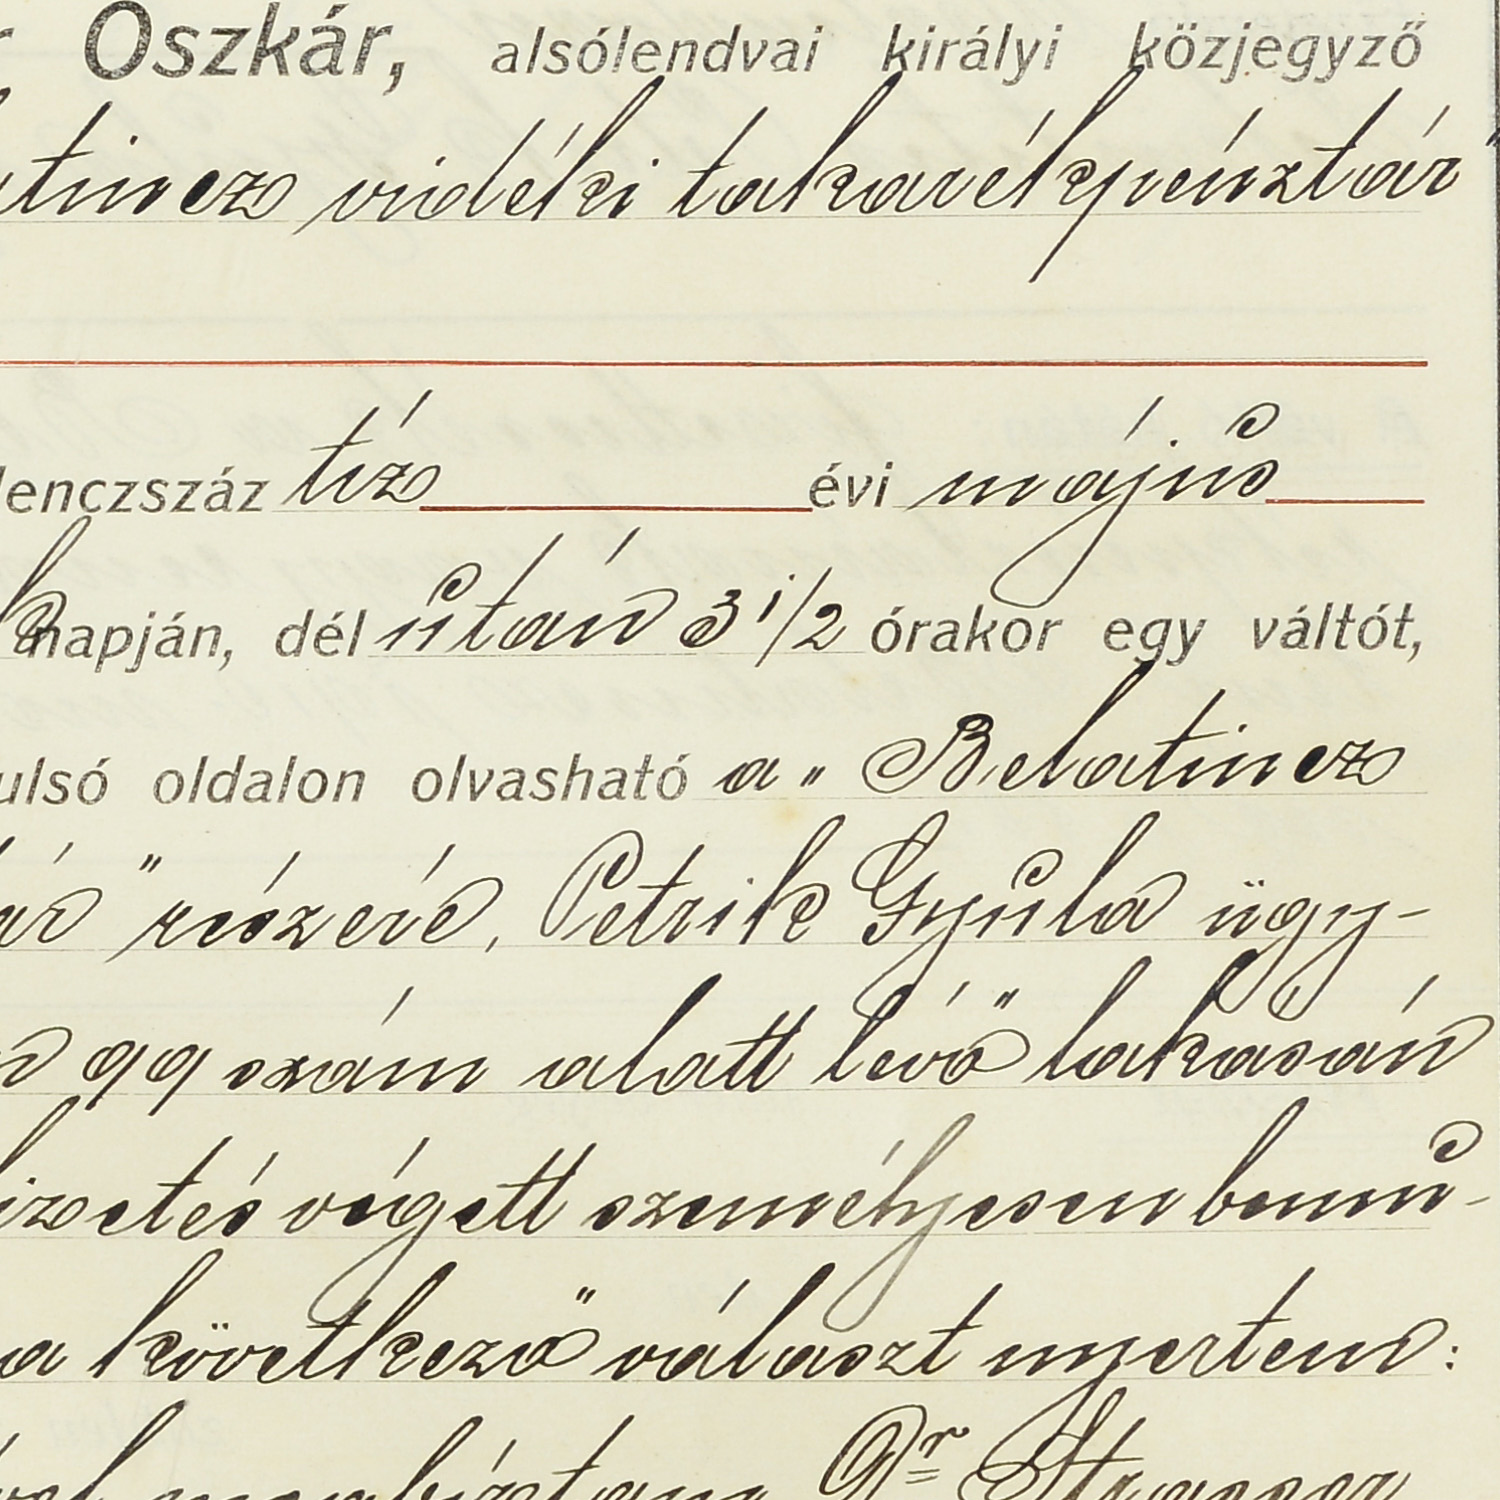 Oszkár, alsólendvai királyi közjegyző
vidéki takarékpénztár
tiz évi május
napján, dél után 3 1/2 órakor egy váltót,
oldalon olvasható a „Belatincz
" részére, Petrik Gyula ügy-
99 szám alatt lévő lakásán
végett személyesen benmu-
a következő választ nyertem:
Dr Strasser